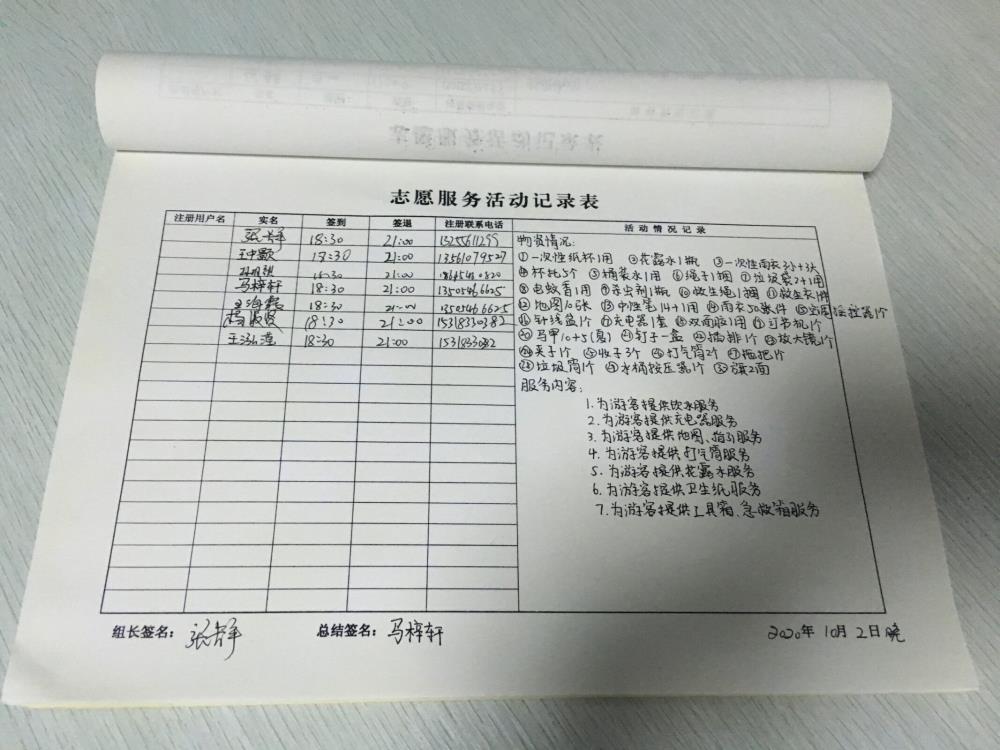 志愿服务活动记录表
注册用户名 实名 签到 签退 注册联系电话 活动情况记录
18:30 21:00 13255611299
18:30 21:00 13561079527
18:30 21:00
马梓轩 18:30 21:00 13505466625
18:30 21:00 13505466625
18:30 21:00 15318330382
18:30 21:00
物资情况:
①一次性纸杯1用 ②花露水1瓶 ③一次性雨衣
④杯托5个 ⑤桶装水1用 ⑥绳子1捆 ⑦垃圾袋2+1用
⑧电蚊香1用 ⑨杀虫剂1瓶 ⑩救生绳1捆 ⑪救生衣1件
⑫地图 ⑬中性笔14+1用 ⑭雨衣50数件
⑯针线盒1个 ⑰充电器1套 ⑱双面胶1用 ⑲订书机1个
⑳马甲10+5(急) ㉑钉子一盒 ㉒插排1个 ㉓放大镜1个
㉔夹子1个 3个 ㉖打气筒2个 ㉗拖把1个
㉘垃圾筒1个 ㉙水桶按压器1个 ㉚旗2面
服务内容:
1.为游客提供饮水服务
2.为游客提供充电器服务
3.为游客提供地图、指引服务
4.为游客提供打气筒服务
5.为游客提供花露水服务
6.为游客提供卫生纸服务
7.为游客提供工具箱、急救箱服务
组长签名: 总结签名:马梓轩 2020年10月2日晚